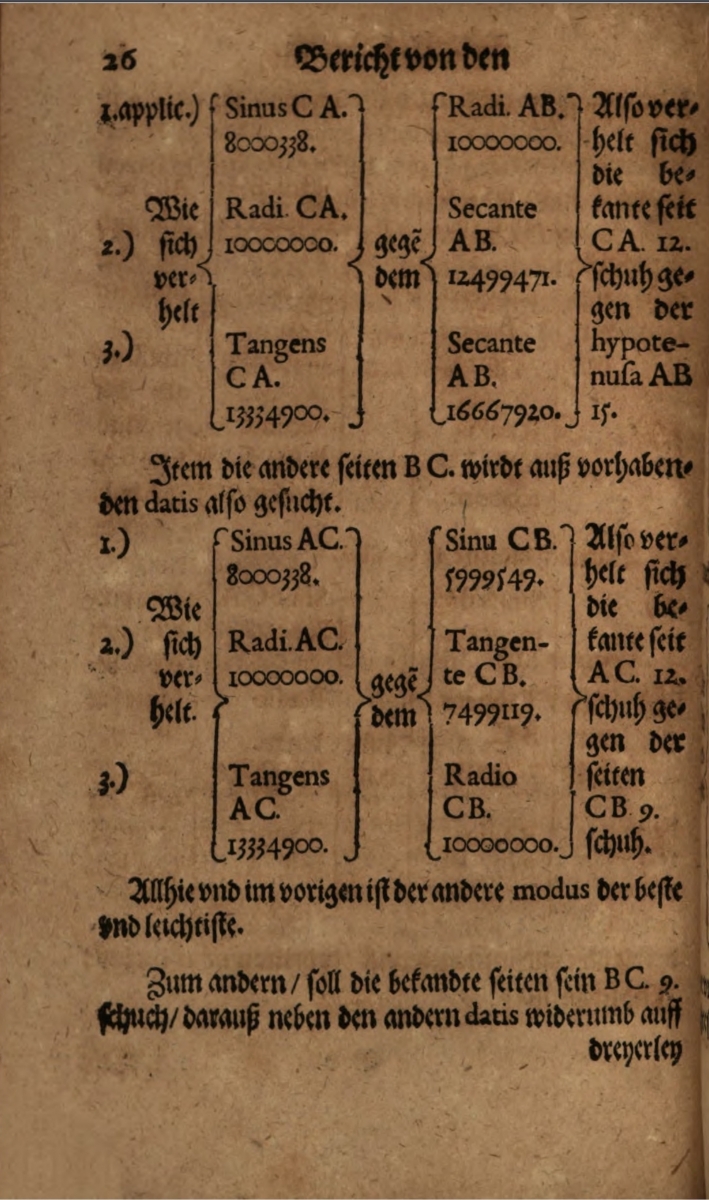 26 Bericht von den
1.applic.) Sinus C A. Radi. AB. Also ver⸗
8000338. 10000000. helt sich
die be⸗
Wie Radi. CA. Secante kante seit
2.) sich 10000000. gegẽ AB. CA. 12.
ver⸗ dem 12499471. schuh ge⸗
helt gen der
3.) Tangens Secante hypote-
CA. AB. nuſa AB
13334900. 16667920. 15.
Item die andere seiten B C. wirdt auß vorhaben⸗
den datis also gesucht.
1.) Sinus AC. Sinu CB. Also ver⸗
8000338. 5999549. helt sich
Wie die be⸗
2.) sich Radi. AC. Tangen- kante seit
ver⸗ 10000000. gegẽ te CB. AC. 12.
helt. dem 7499119. schuh ge⸗
gen der
3.) Tangens Radio seiten
AC. CB. CB 9.
13334900. 10000000. schuh.
Allhie vnd im vorigen ist der andere modus der beste
vnd leichtiste.
Zum andern / soll die bekandte seiten sein B C. 9.
schuch / darauß neben den andern datis widerumb auff
dreyerley